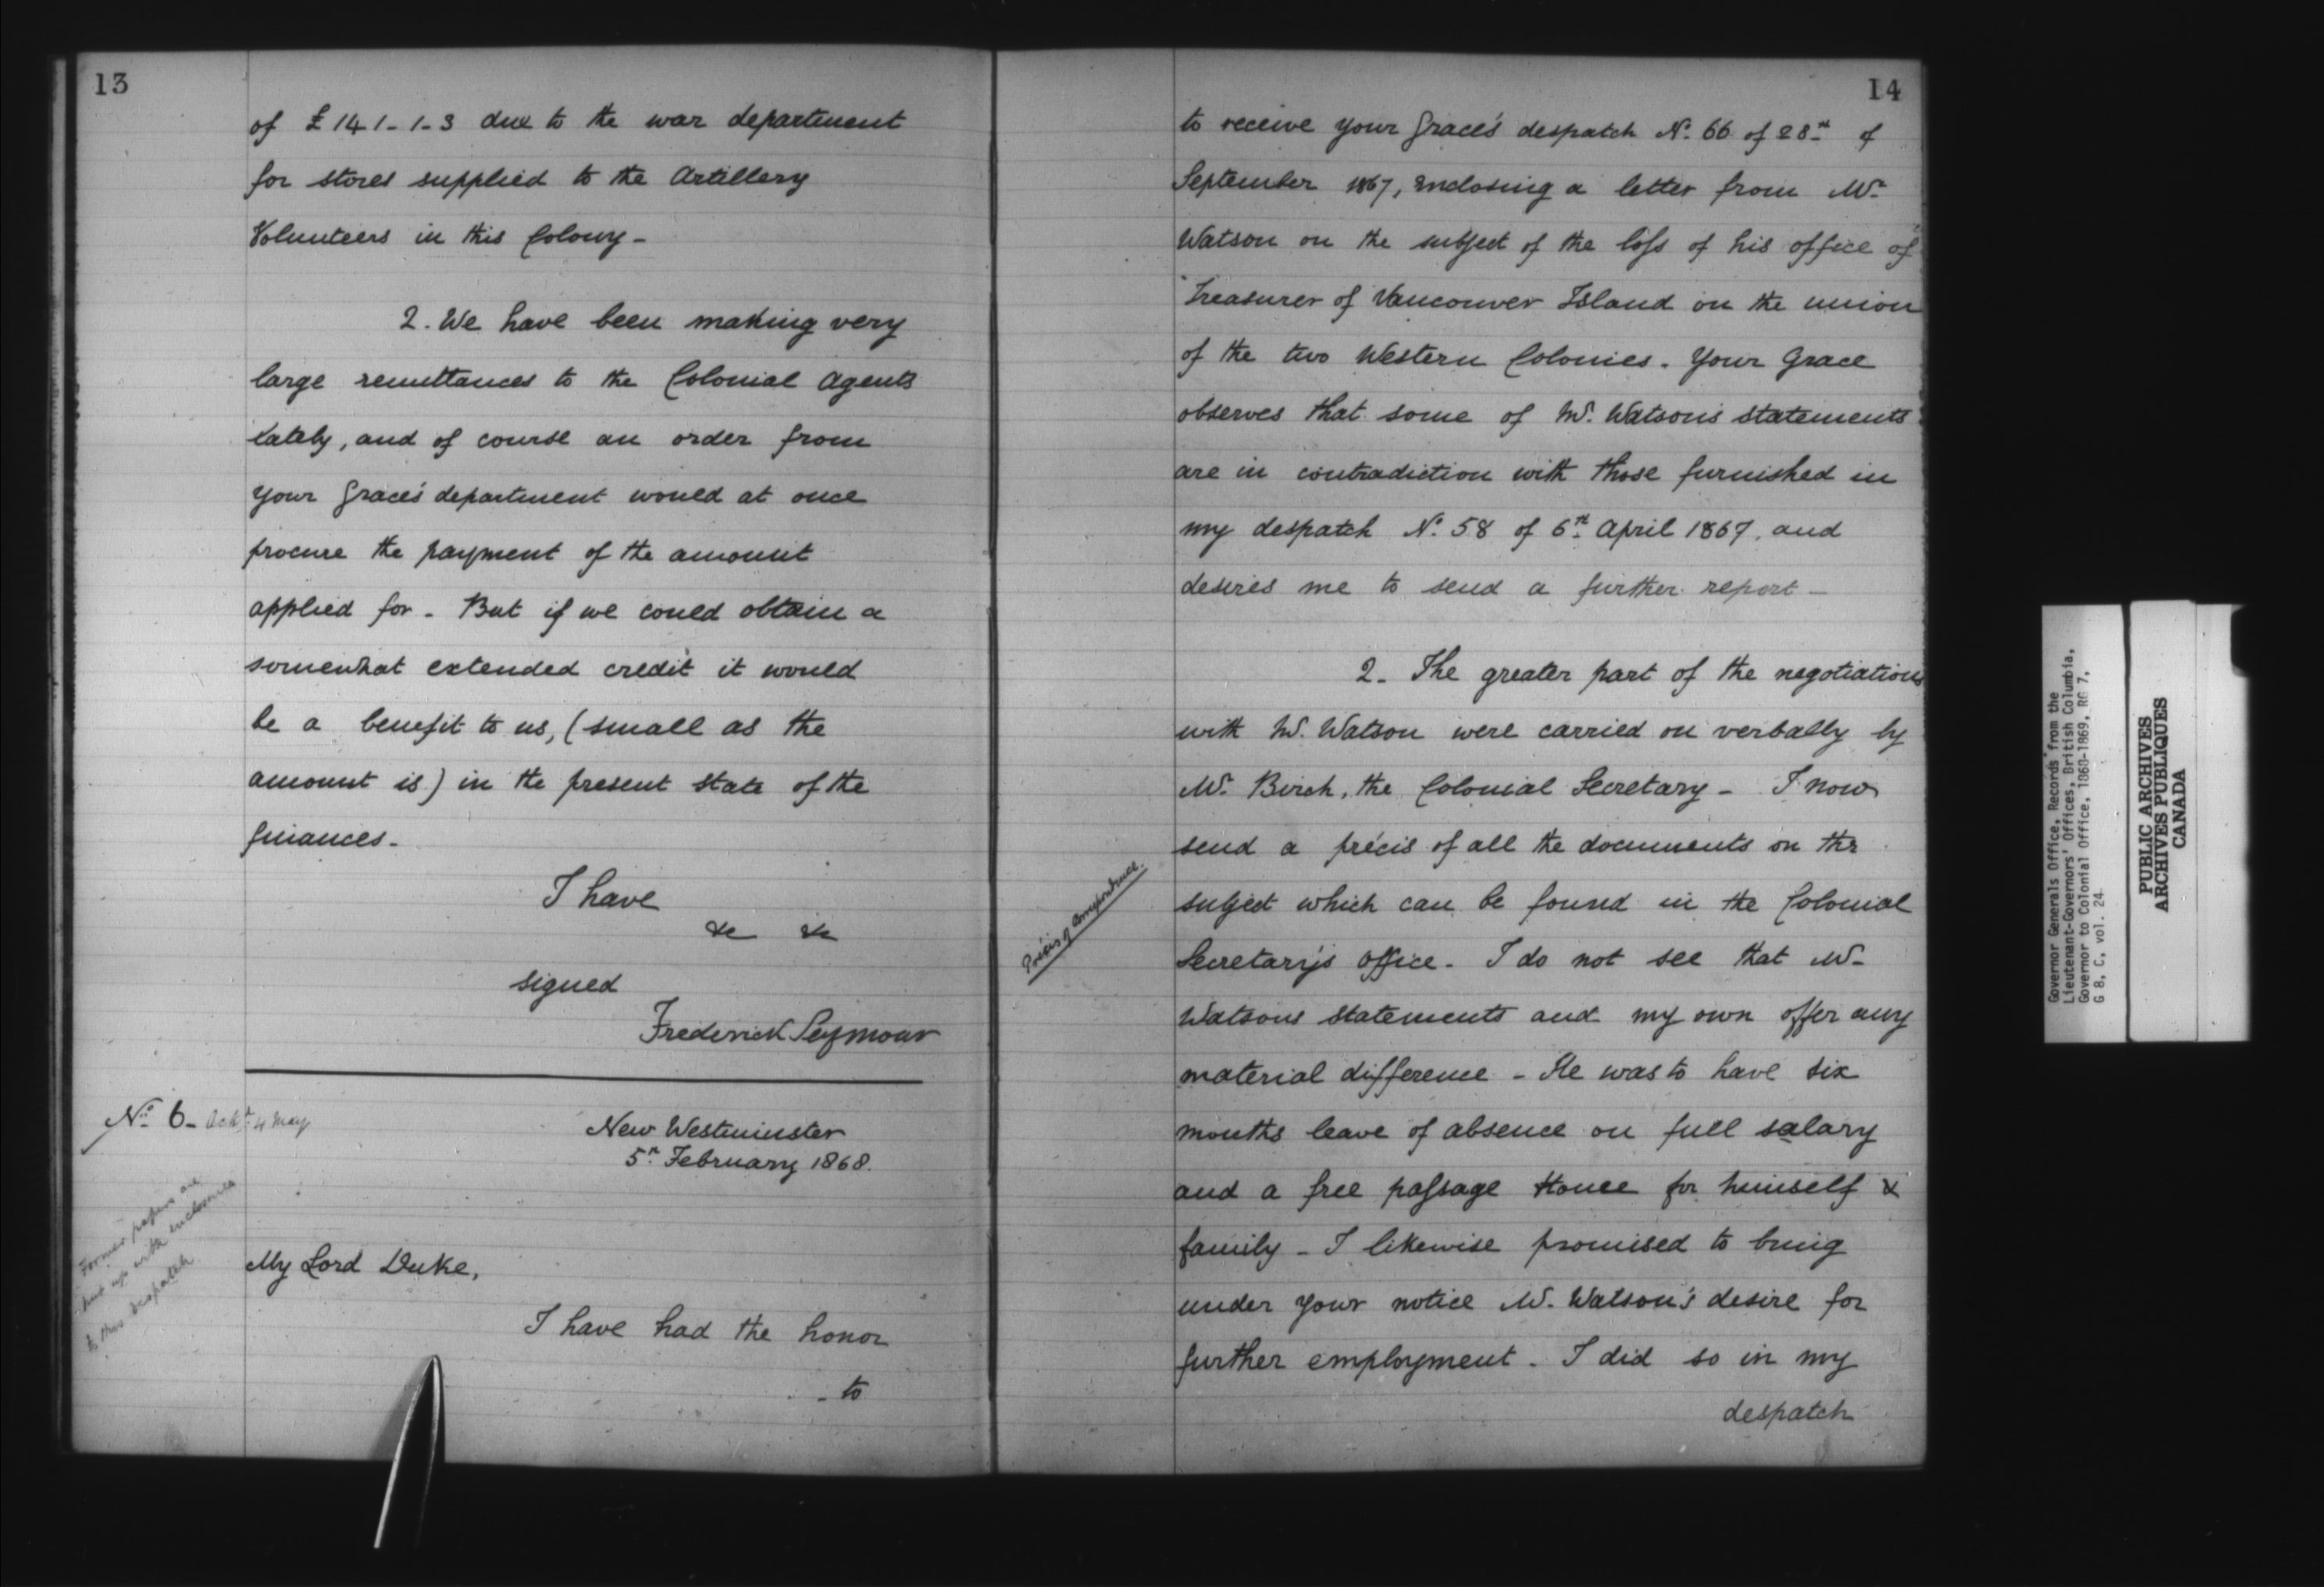 13
of £141-1-3 due to the war department
for stores supplied to the Artillery
Volunteers in this Colony-
2. We have been making very
large remittances to the Colonial Agents
lately, and of course an order from
your Grace's department would at once
procure the payment of the amount
applied for - But if we could obtain a
somewhat extended credit it would
be a benefit to us, (small as the
amount is) in the present state of the
finances -
I have
&c &c
signed
Frederick Seymour
No. 6 - Ackd. 4 May
New Westminster
5th February 1868.
Former papers are
put up with enclosures
to this despatch
My Lord Duke,
I have had the honor
- to
14
to receive your Grace's despatch No. 66 of 28th of
September 1867, enclosing a letter from Mr.
Watson on the subject of the loss of his office of
Treasurer of Vancouver Island on the union
of the two Western Colonies. Your Grace
observes that some of Mr. Watson's statements
are in contradiction with those furnished in
my despatch No. 58 of 6th April 1867, and
desires me to send a further report -
2 - The greater part of the negotiations
with Mr. Watson were carried on verbally by
Mr. Birch, the Colonial Secretary - I now
send a précis of all the documents on the
Précis of Correspondence.
subject which can be found in the Colonial
Secretary's office - I do not see that Mr.
Watsons statements and my own offer any
material difference - He was to have six
months leave of absence on full salary
and a free passage Home for himself &
family - I likewise promised to bring
under your notice Mr. Watson's desire for
further employment - I did so in my
despatch
Governor Generals Office, Records from the
Lieutenant-Governors' Offices, British Columbia,
Governor to Colonial Office, 1868-1869, RG 7,
G 8, C, vol. 24
PUBLIC ARCHIVES
ARCHIVES PUBLIQUES
CANADA